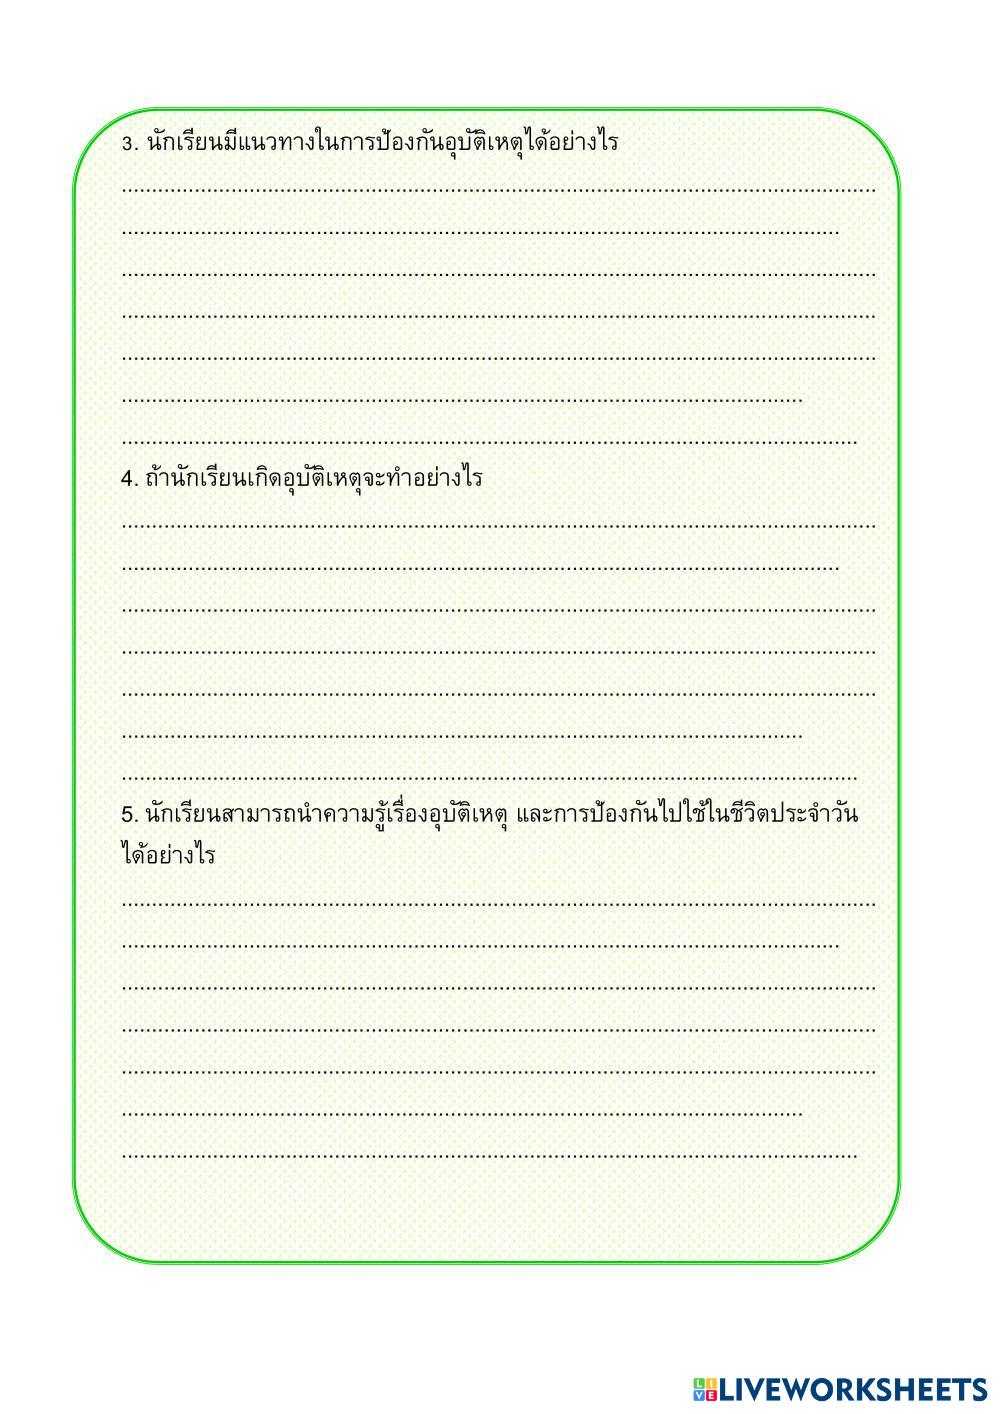 3. นักเรียนมีแนวทางในการป้องกันอุบัติเหตุได้อย่างไร
4. ถ้านักเรียนเกิดอุบัติเหตุจะทำอย่างไร
5. นักเรียนสามารถนำความรู้เรื่องอุบัติเหตุ และการป้องกันไปใช้ในชีวิตประจำวัน
ได้อย่างไร
LIVE LIVEWORKSHEETS